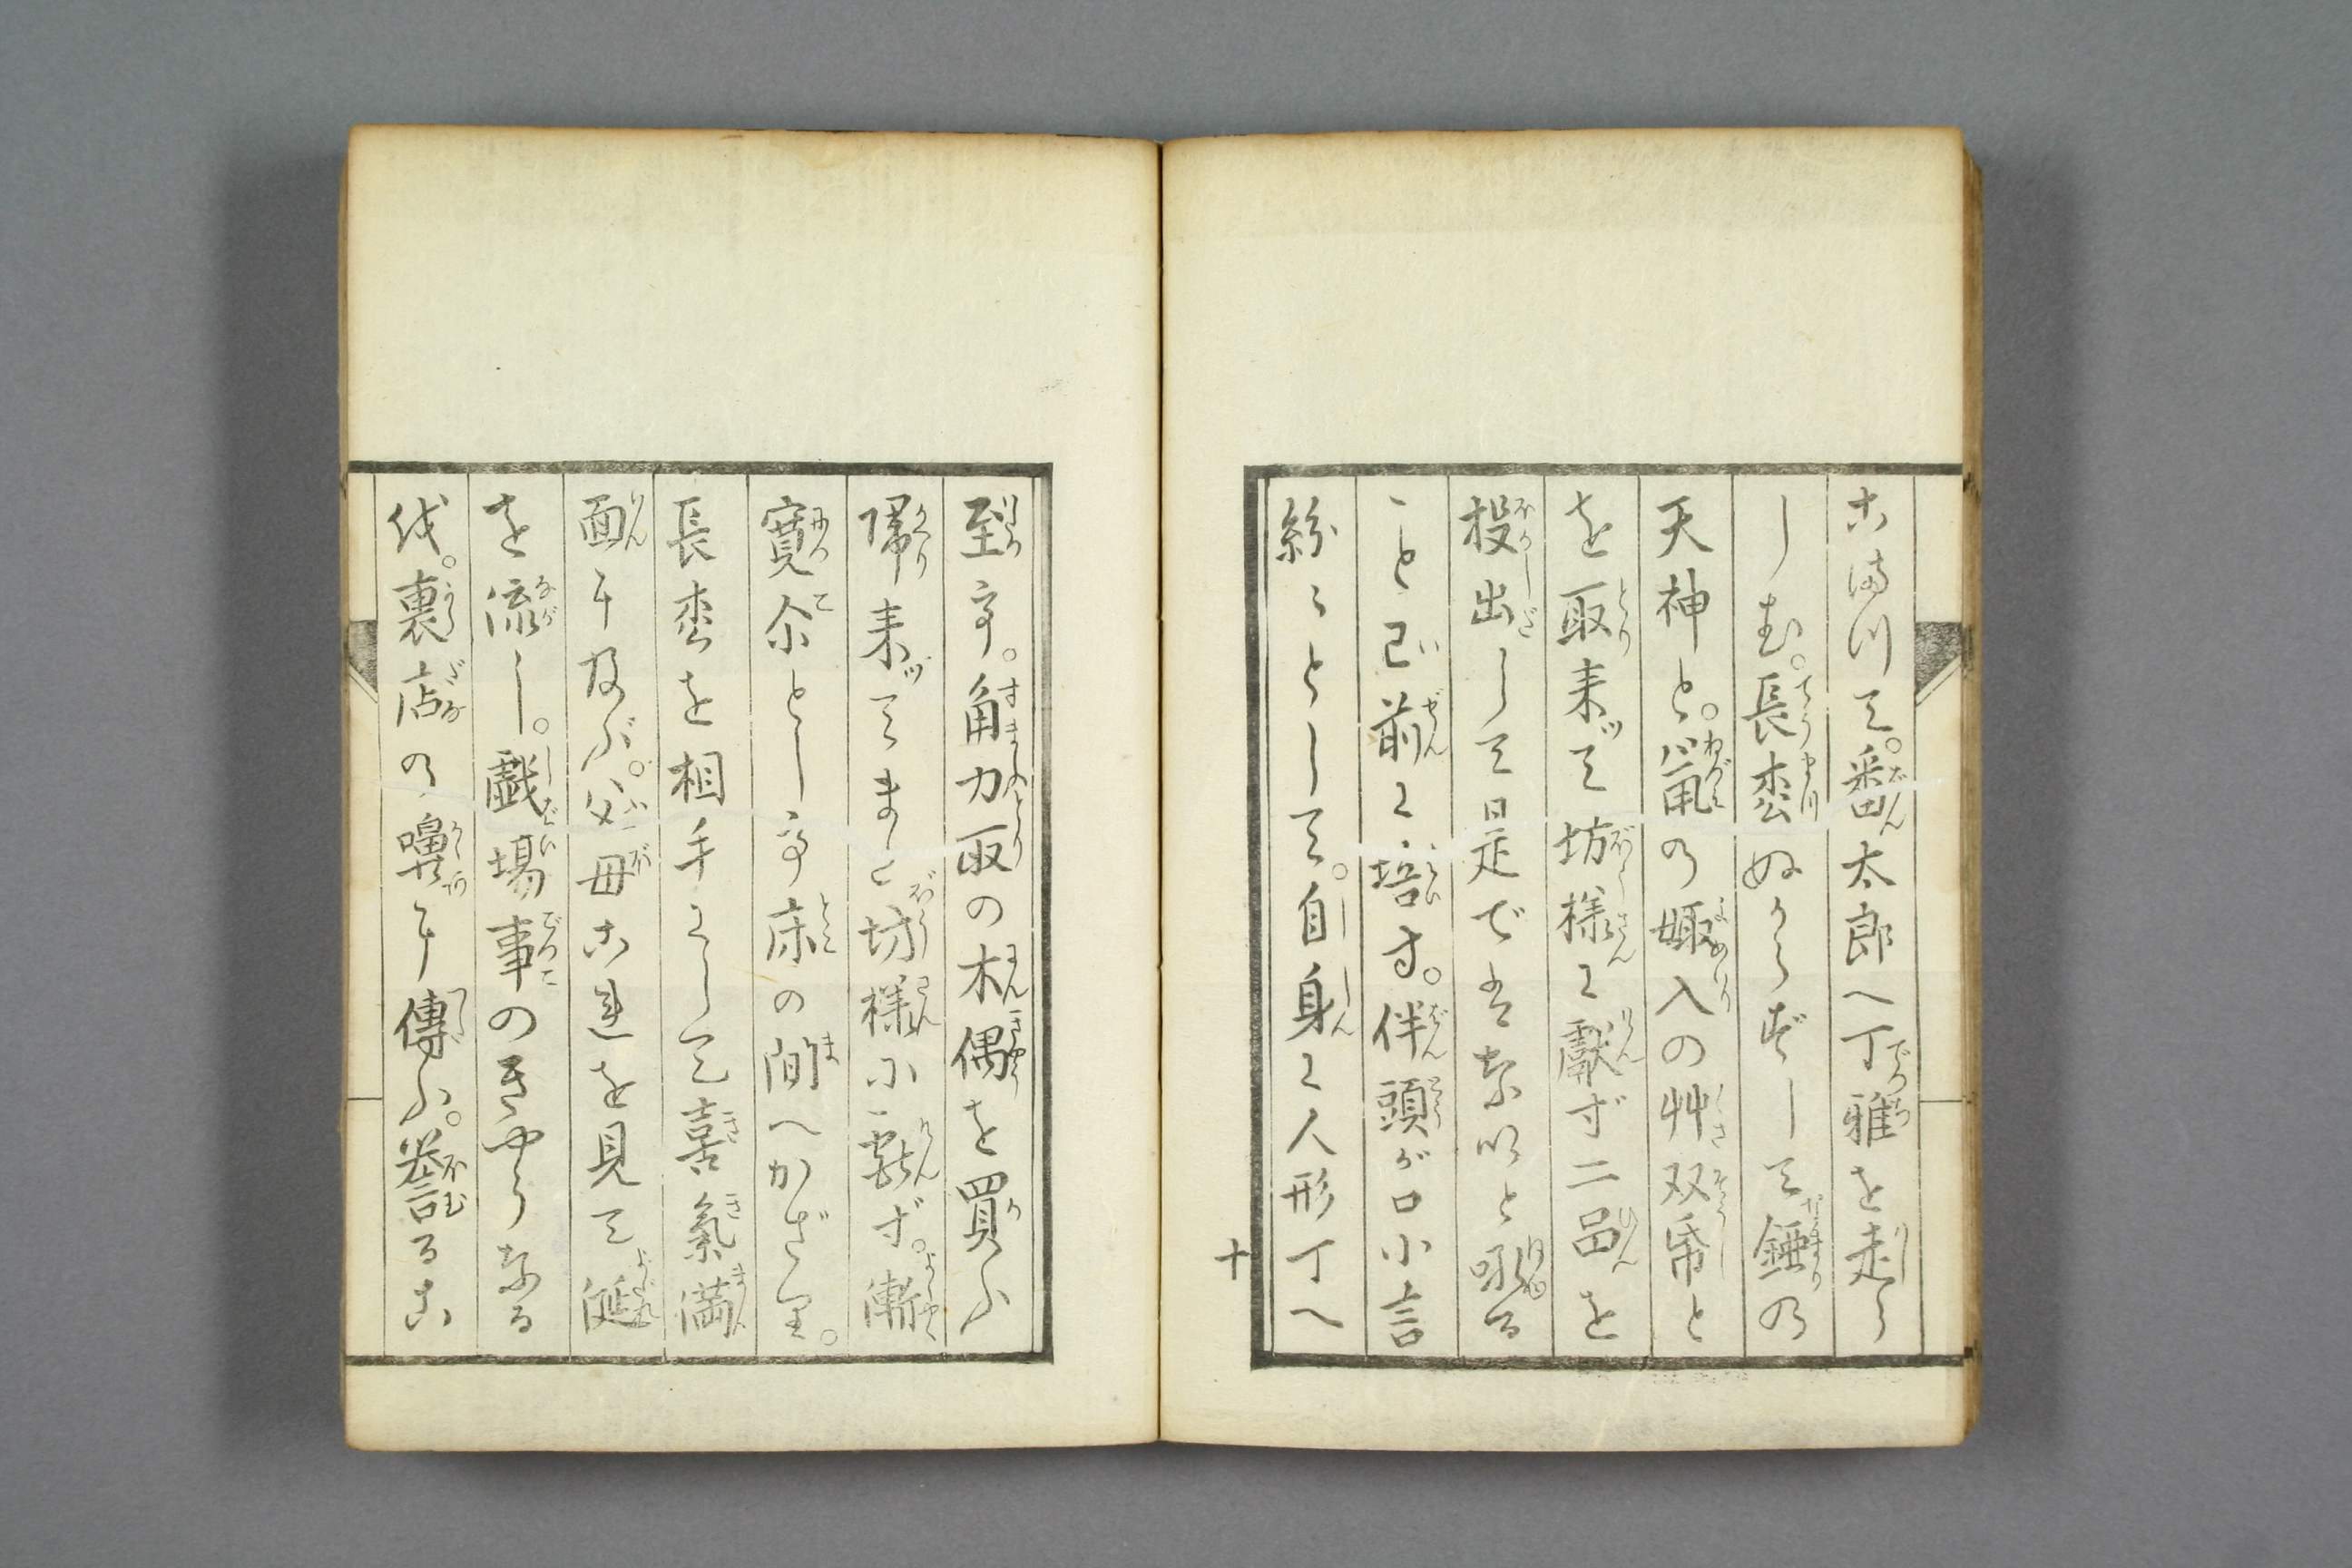 こまつて。番太郎へ丁雅を走ら
しむ。長松ぬからずして錘の
天神と。鼠の娵入の艸双帋と
を取来ツて坊様に獻ず二品を
投出して是ではないと吼る
こと已前に培す。伴頭が口小言
紛〻として。自身に人形丁へ
十
至り。角力取の木偶を買ふ
帰来ツてまた坊様に獻ず。漸
寛尓として床の間へかざり。
長松を相手にして喜氣満
面に及ぶ。父母これを見て涎
を流し。戯場事のきやうなる
伐。裏店の嚊に傳ふ。誉るこ